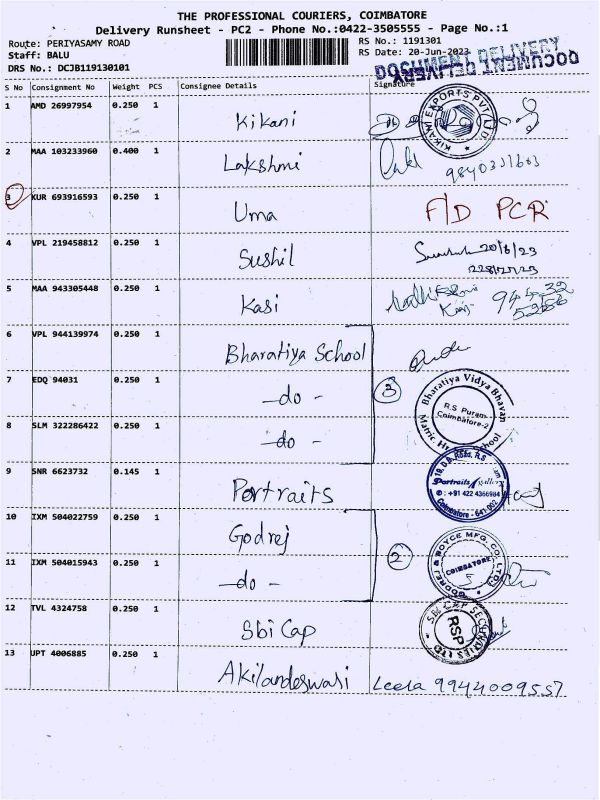 THE PROFESSIONAL COURIERS, COIMBATORE
Delivery Runsheet - PC2 - Phone No.:0422-3505555 - Page No.:1
Route: PERIYASAMY ROAD
Staff: BALU
DRS No.: DCJB119130101
RS No.: 1191301
RS Date: 20-Jun-2023
DOCUMENT DELIVERY
DOCUMENT DELIVERY
S No Consignment No Weight PCS Consignee Details Signature
1 AMD 26997954 0.250 1 Kikani
KIKANI EXPORTS PVT. LTD.
2 MAA 103233960 0.400 1 Lakshmi
3 KUR 693916593 0.250 1 Uma F/D PCR
4 VPL 219458812 0.250 1 Sushil 20/6/23
5 MAA 943305448 0.250 1 Kasi
6 VPL 944139974 0.250 1 Bharatiya School
7 EDQ 94031 0.250 1 -do- 3
Bharatiya Vidya Bhavan
R.S Puram
Coimbatore-2
8 SLM 322286422 0.250 1 -do-
9 SNR 6623732 0.145 1 Portraits
Portraits Gallery
✆ : +91 422 4366984
Coimbatore - 641 002
10 IXM 504022759 0.250 1 Godrej
11 IXM 504015943 0.250 1 -do- 2
GODREJ & BOYCE MFG. CO. LTD.
COIMBATORE
12 TVL 4324758 0.250 1 Sbi Cap
SBI CAP SECURITIES LTD
RSP
13 UPT 4006885 0.250 1 Akilandeswasi Leela 9944009557